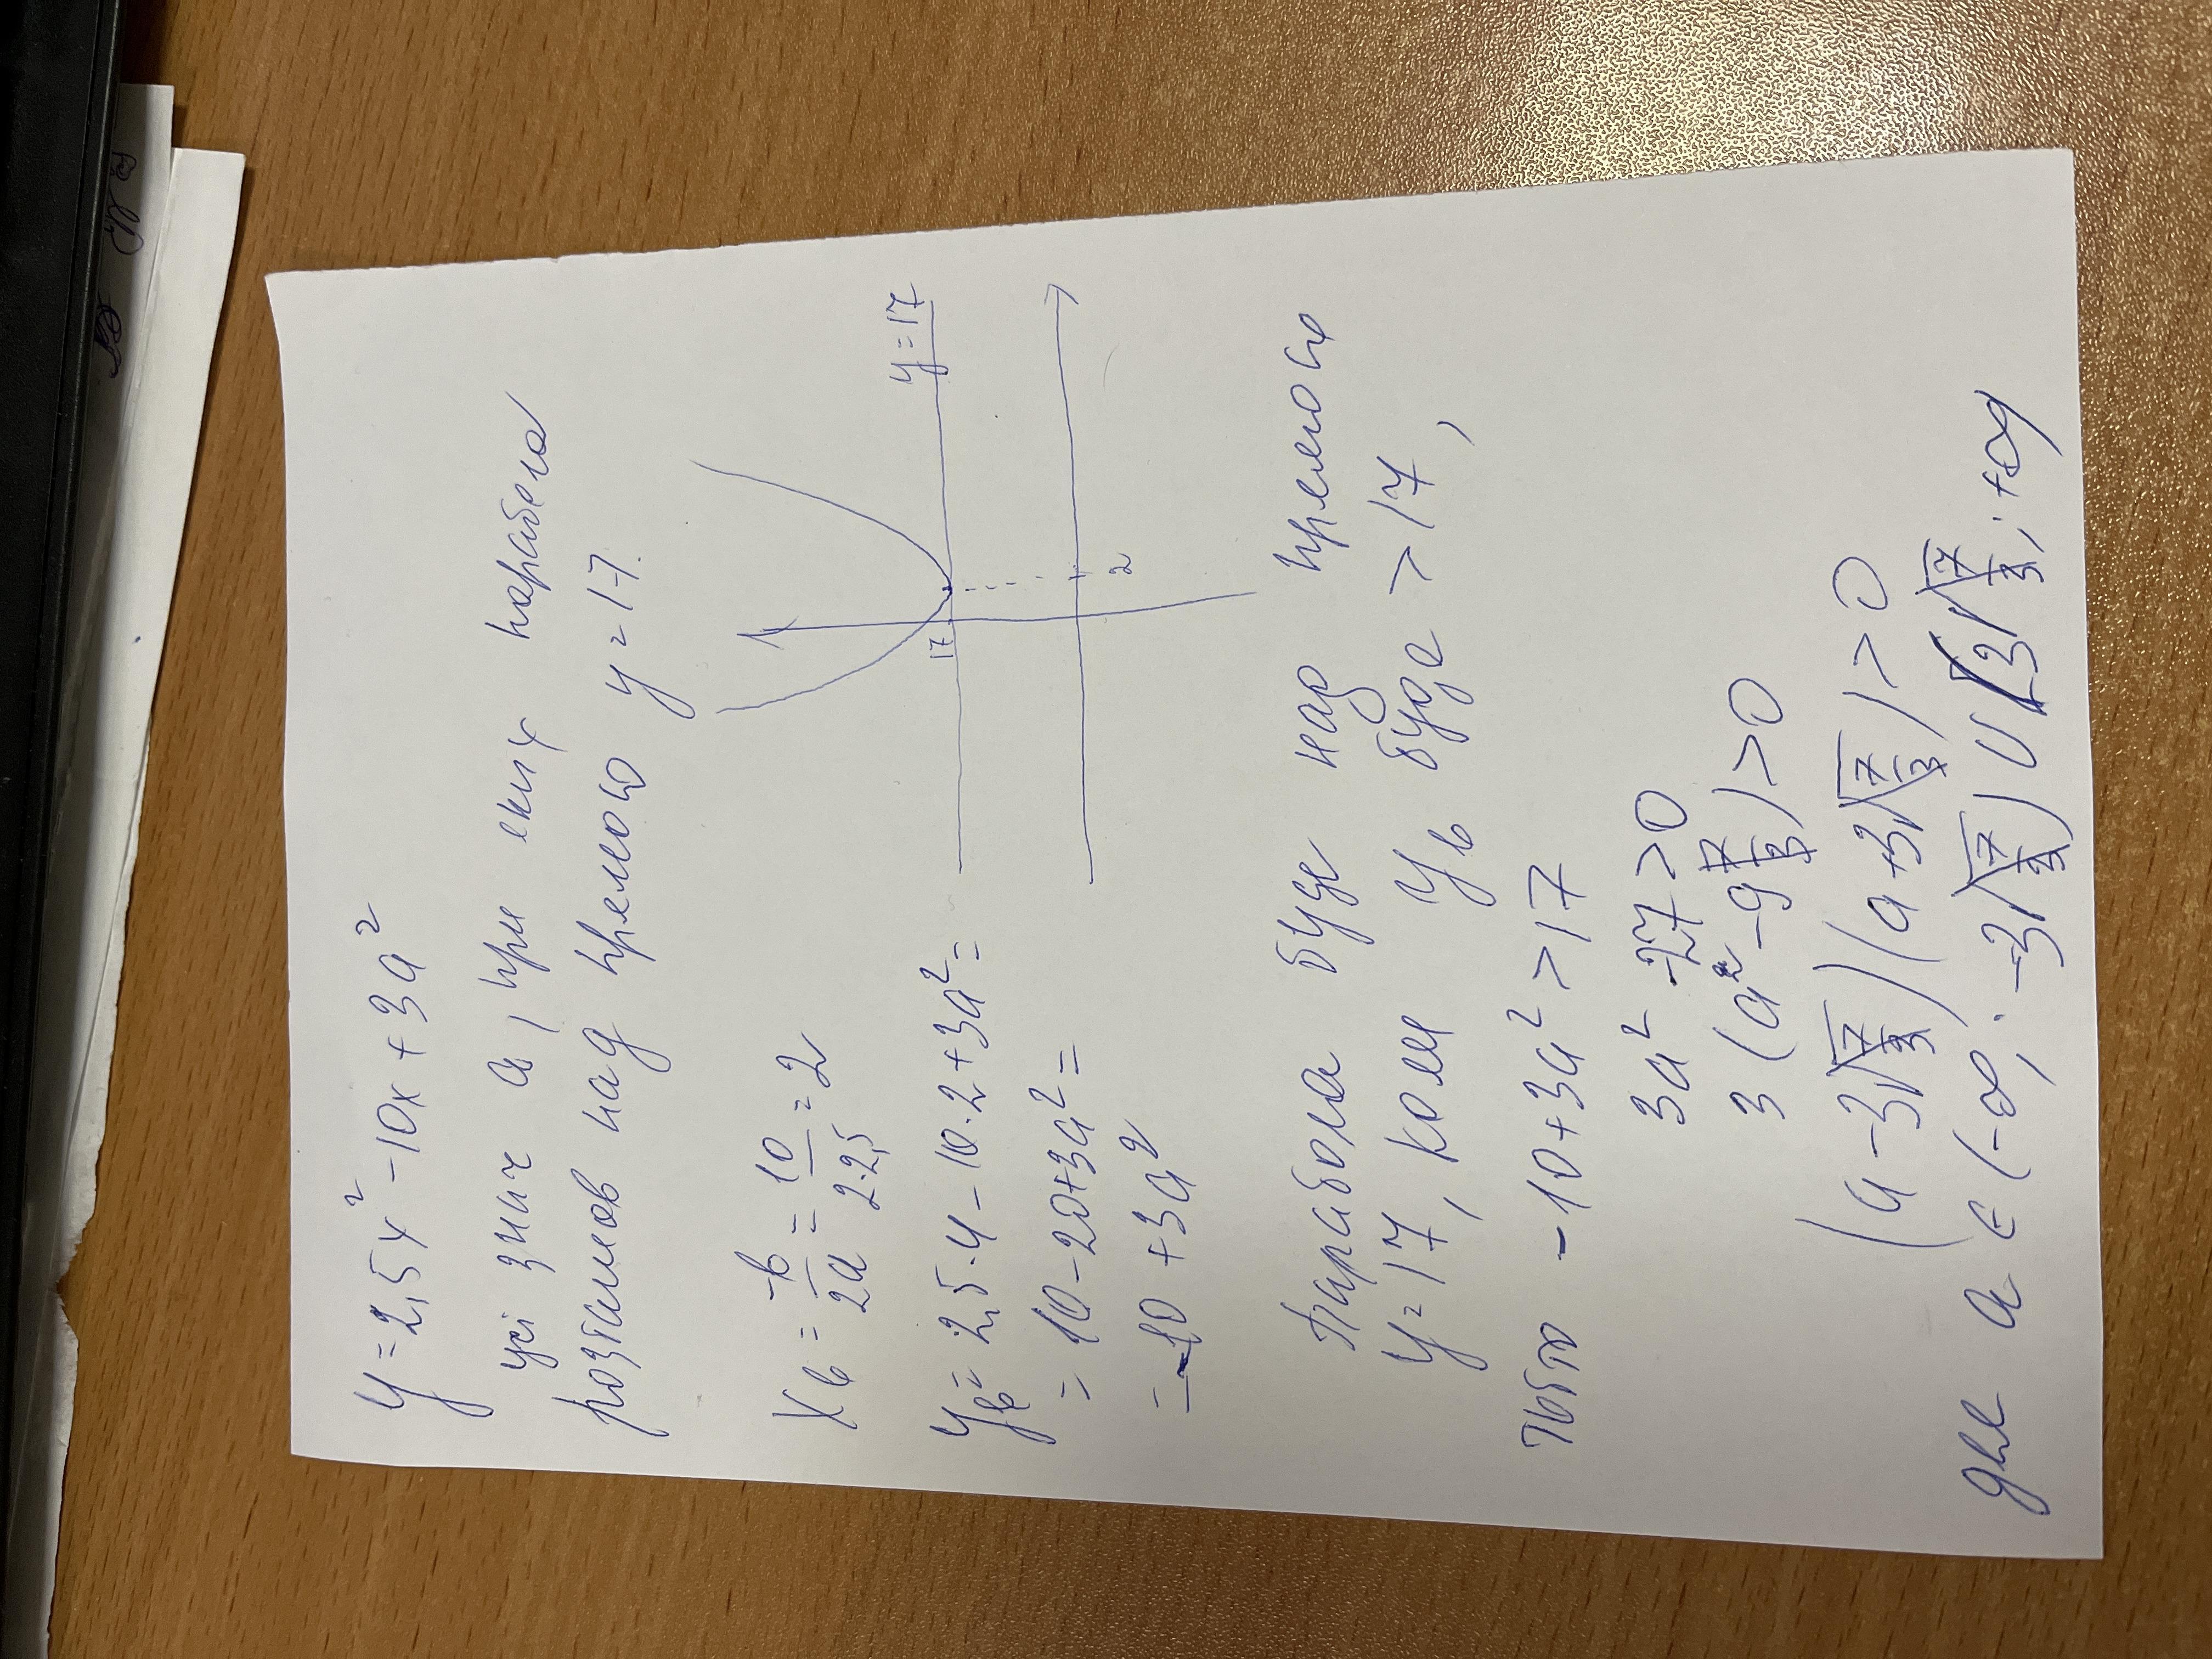 y = 2,5x² - 10x + 3a²
усі знач a, при яких парабола
розташов над прямою y = 17.
x_b = -b/2a = 10/2·2,5 = 2
y_b = 2,5·4 - 10·2 + 3a² =
= 10 - 20 + 3a² =
= -10 + 3a²
y = 17
17
2
Парабола буде над прямою
y = 17, коли y_b буде > 17,
тобто -10 + 3a² > 17
3a² - 27 > 0
3(a² - 9) > 0
(a - 3)(a + 3) > 0
для a ∈ (-∞; -3) ∪ (3; +∞)